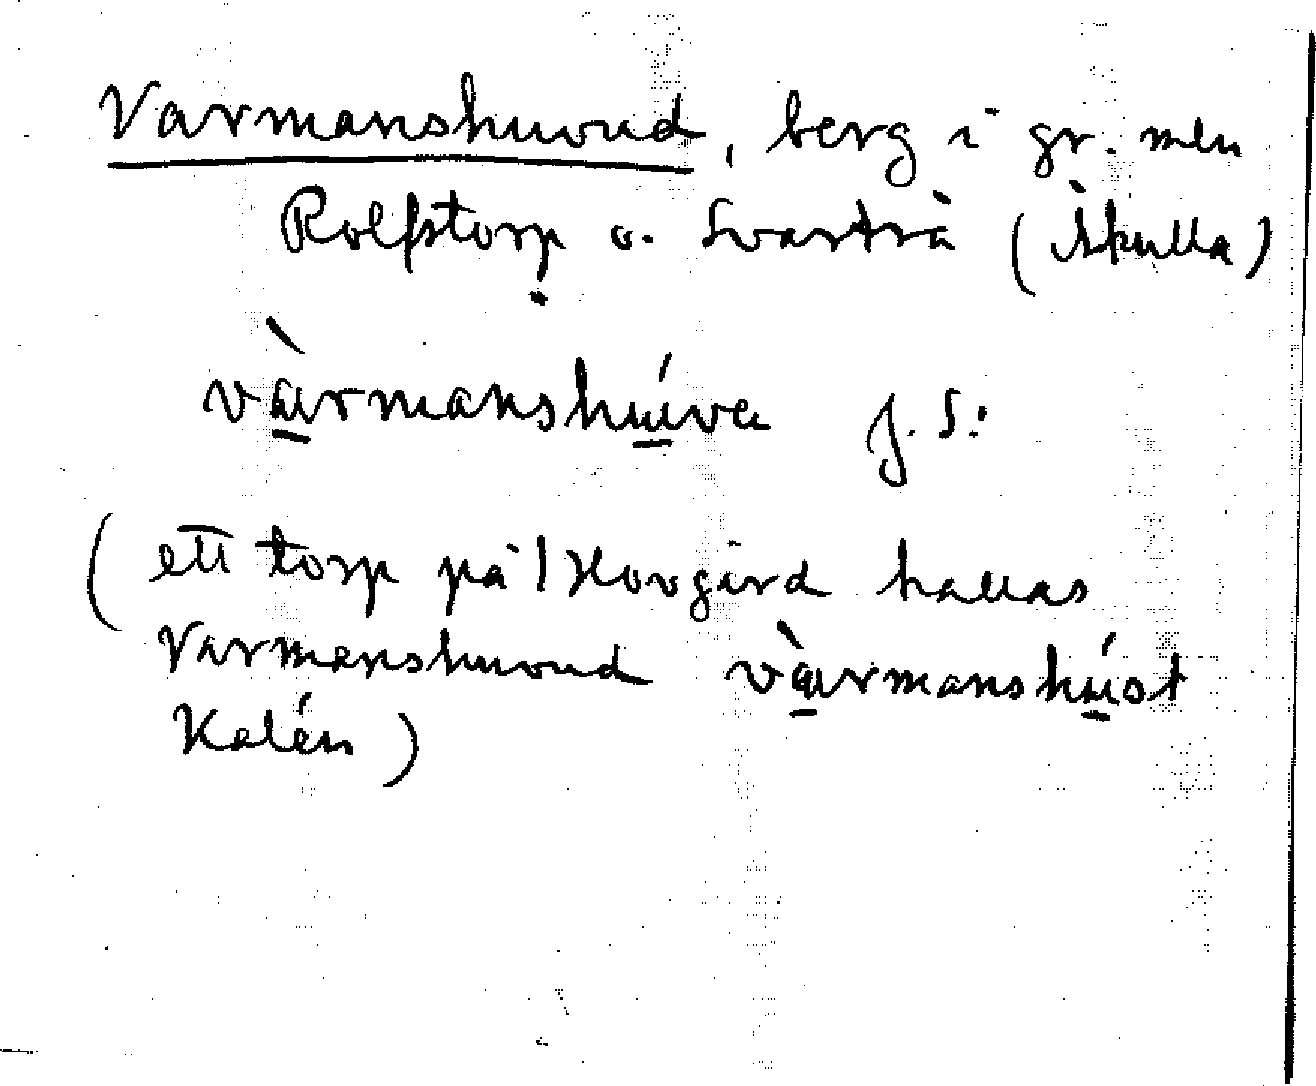 Varmanshuvud, berg i gr. mell
Rolfstorp o. Svartrå (Åkulla)
vàrmanshúvɐ J. S.:
(ett torp på / Hovgård kallas
Varmanshuvud vàrmanshúst
Kalén)